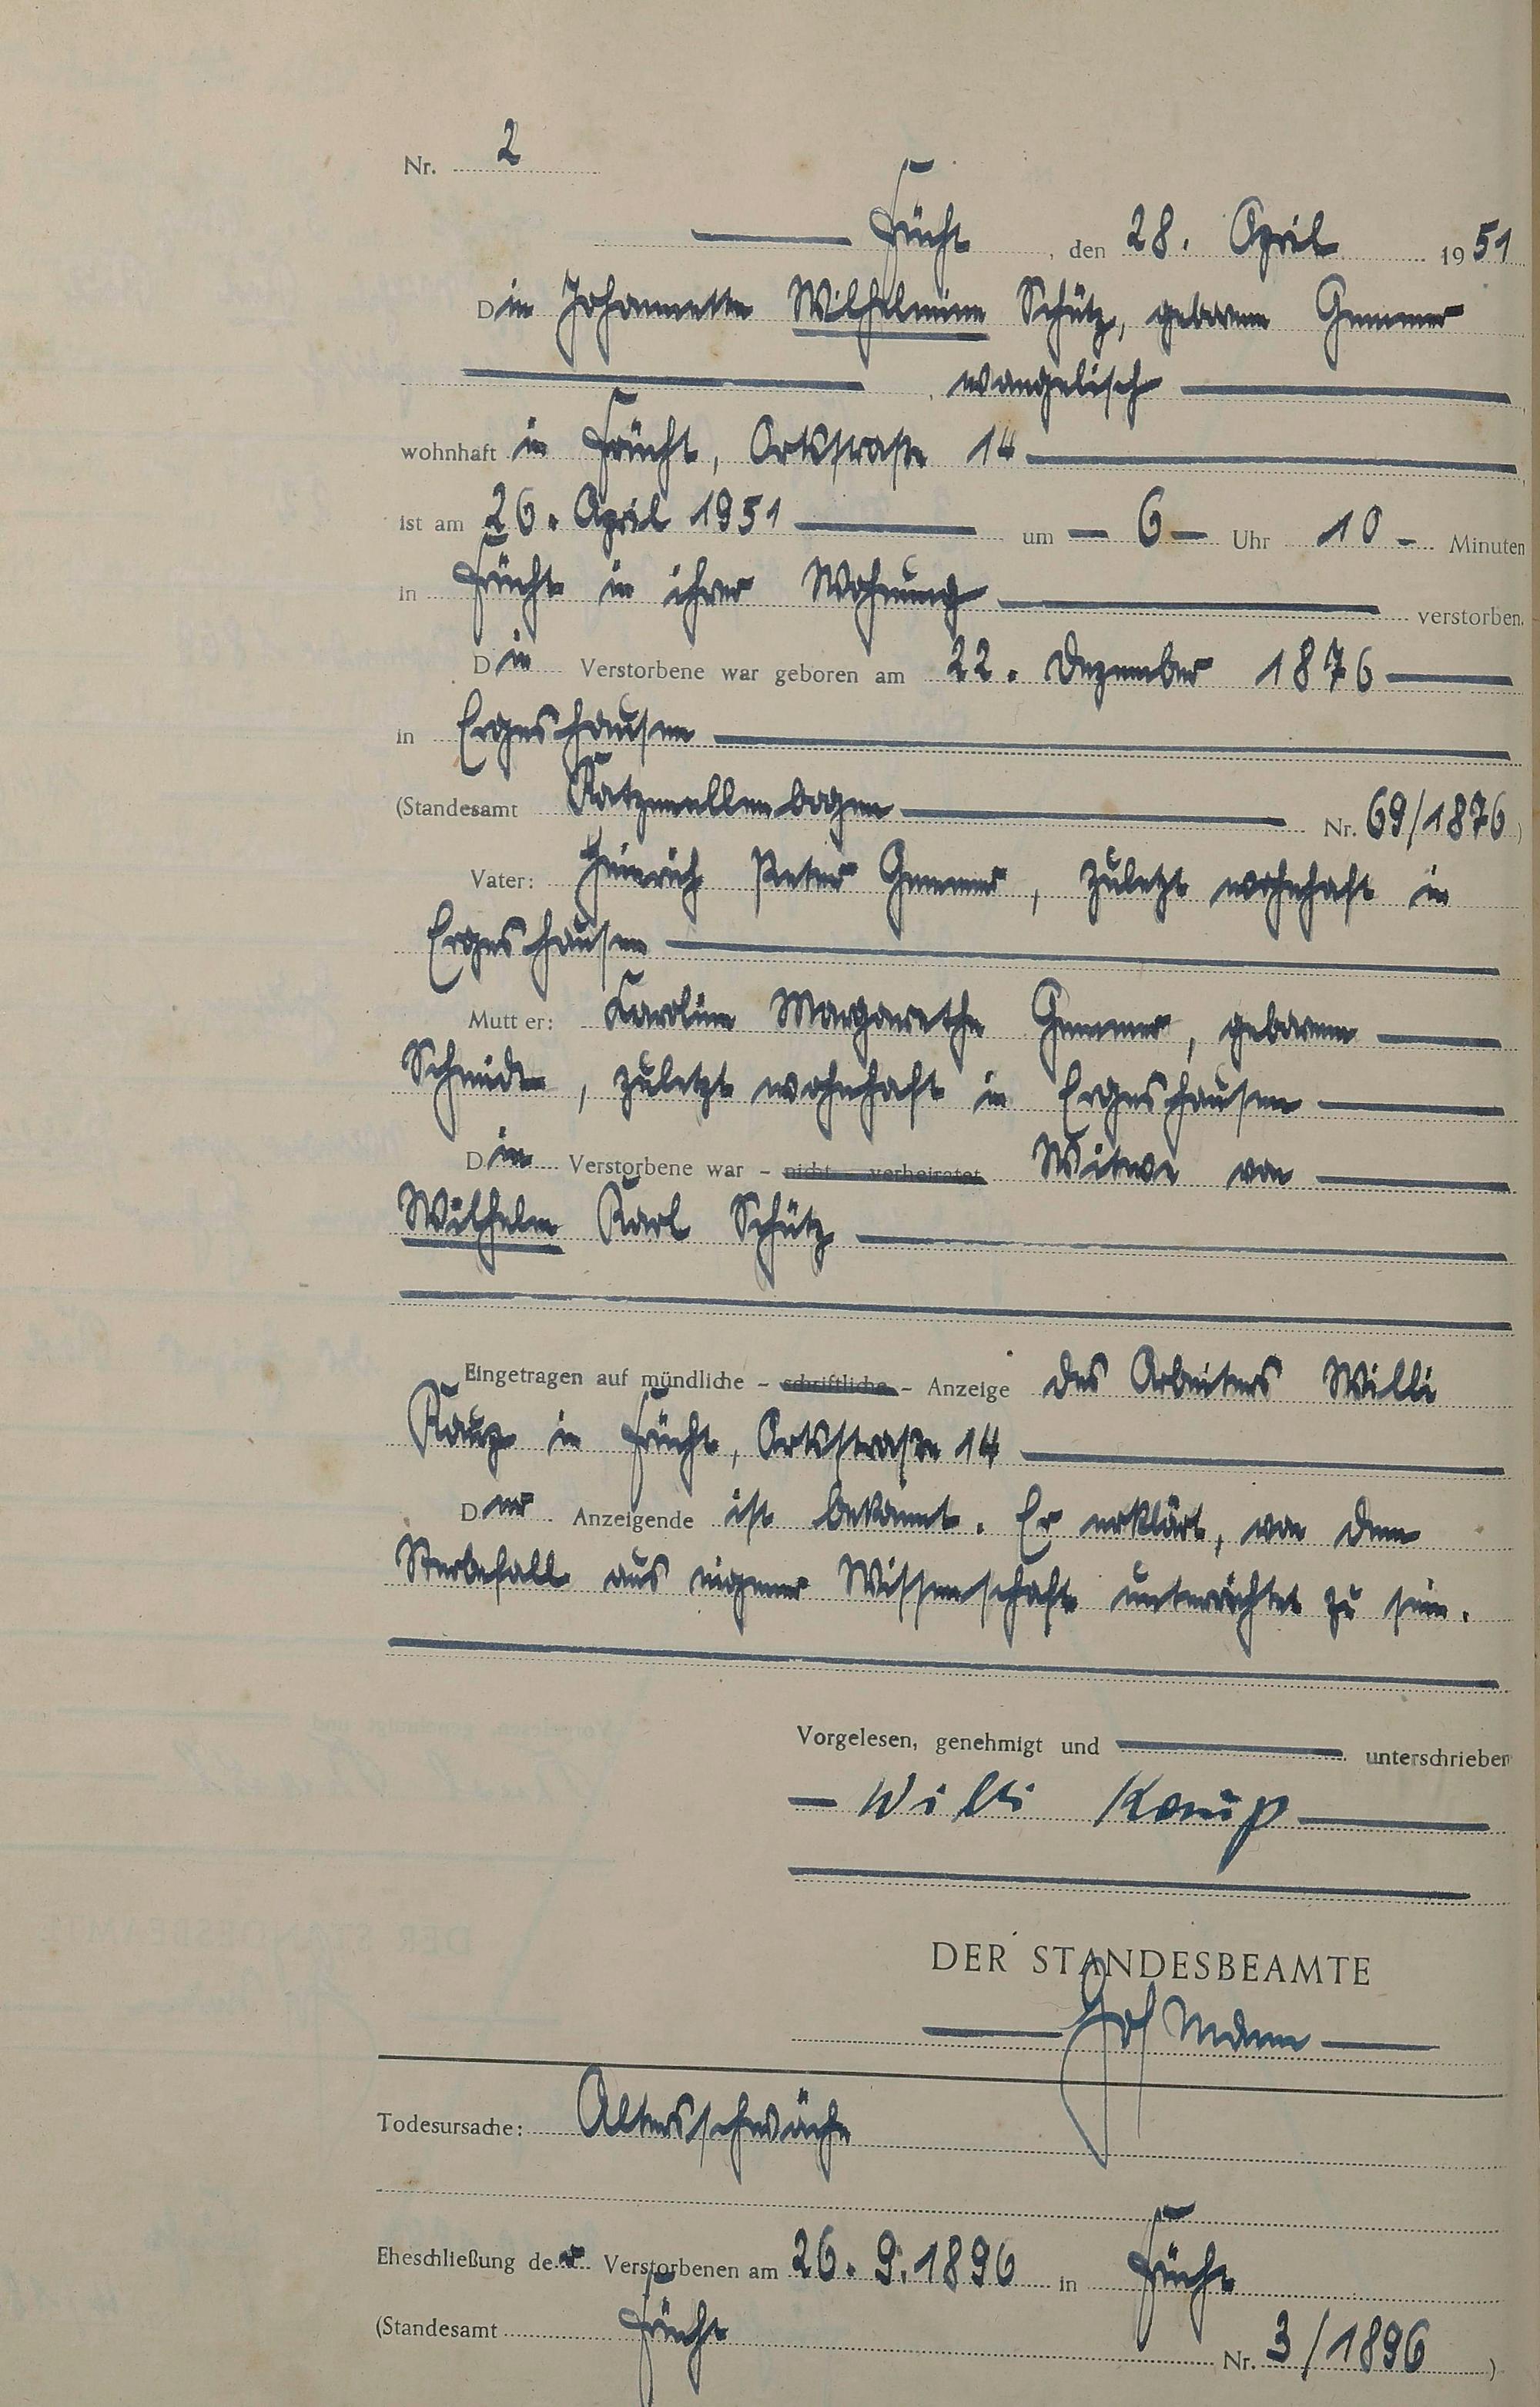 Nr. 2
Frücht, den 28. April 1951
Die Johannette Wilhelmine Schütz, geborene Gemmer
, evangelisch
wohnhaft in Frücht, Ortsstraße 14
ist am 26. April 1951 um 6 Uhr 10 Minuten
in Frücht in ihrer Wohnung verstorben.
Die Verstorbene war geboren am 22. Dezember 1876
in Ergeshausen
(Standesamt Katzenellenbogen Nr. 69/1876)
Vater: Heinrich Peter Gemmer, zuletzt wohnhaft in
Ergeshausen
Mutter: Karoline Margarethe Gemmer, geborene
Schmidt, zuletzt wohnhaft in Ergeshausen
Die Verstorbene war – nicht – verheiratet Witwe von
Wilhelm Karl Schütz
Eingetragen auf mündliche – schriftliche – Anzeige des Arbeiters Willi
in Frücht, Ortsstraße 14
Der Anzeigende ist bekannt. Er erklärt, von dem
Sterbefall aus eigener Wissenschaft unterrichtet zu sein.
Vorgelesen, genehmigt und unterschrieben
Willi
DER STANDESBEAMTE
Hofmann
Todesursache: Altersschwäche
Eheschließung der Verstorbenen am 26. 9. 1896 in Frücht
(Standesamt Frücht Nr. 3/1896)